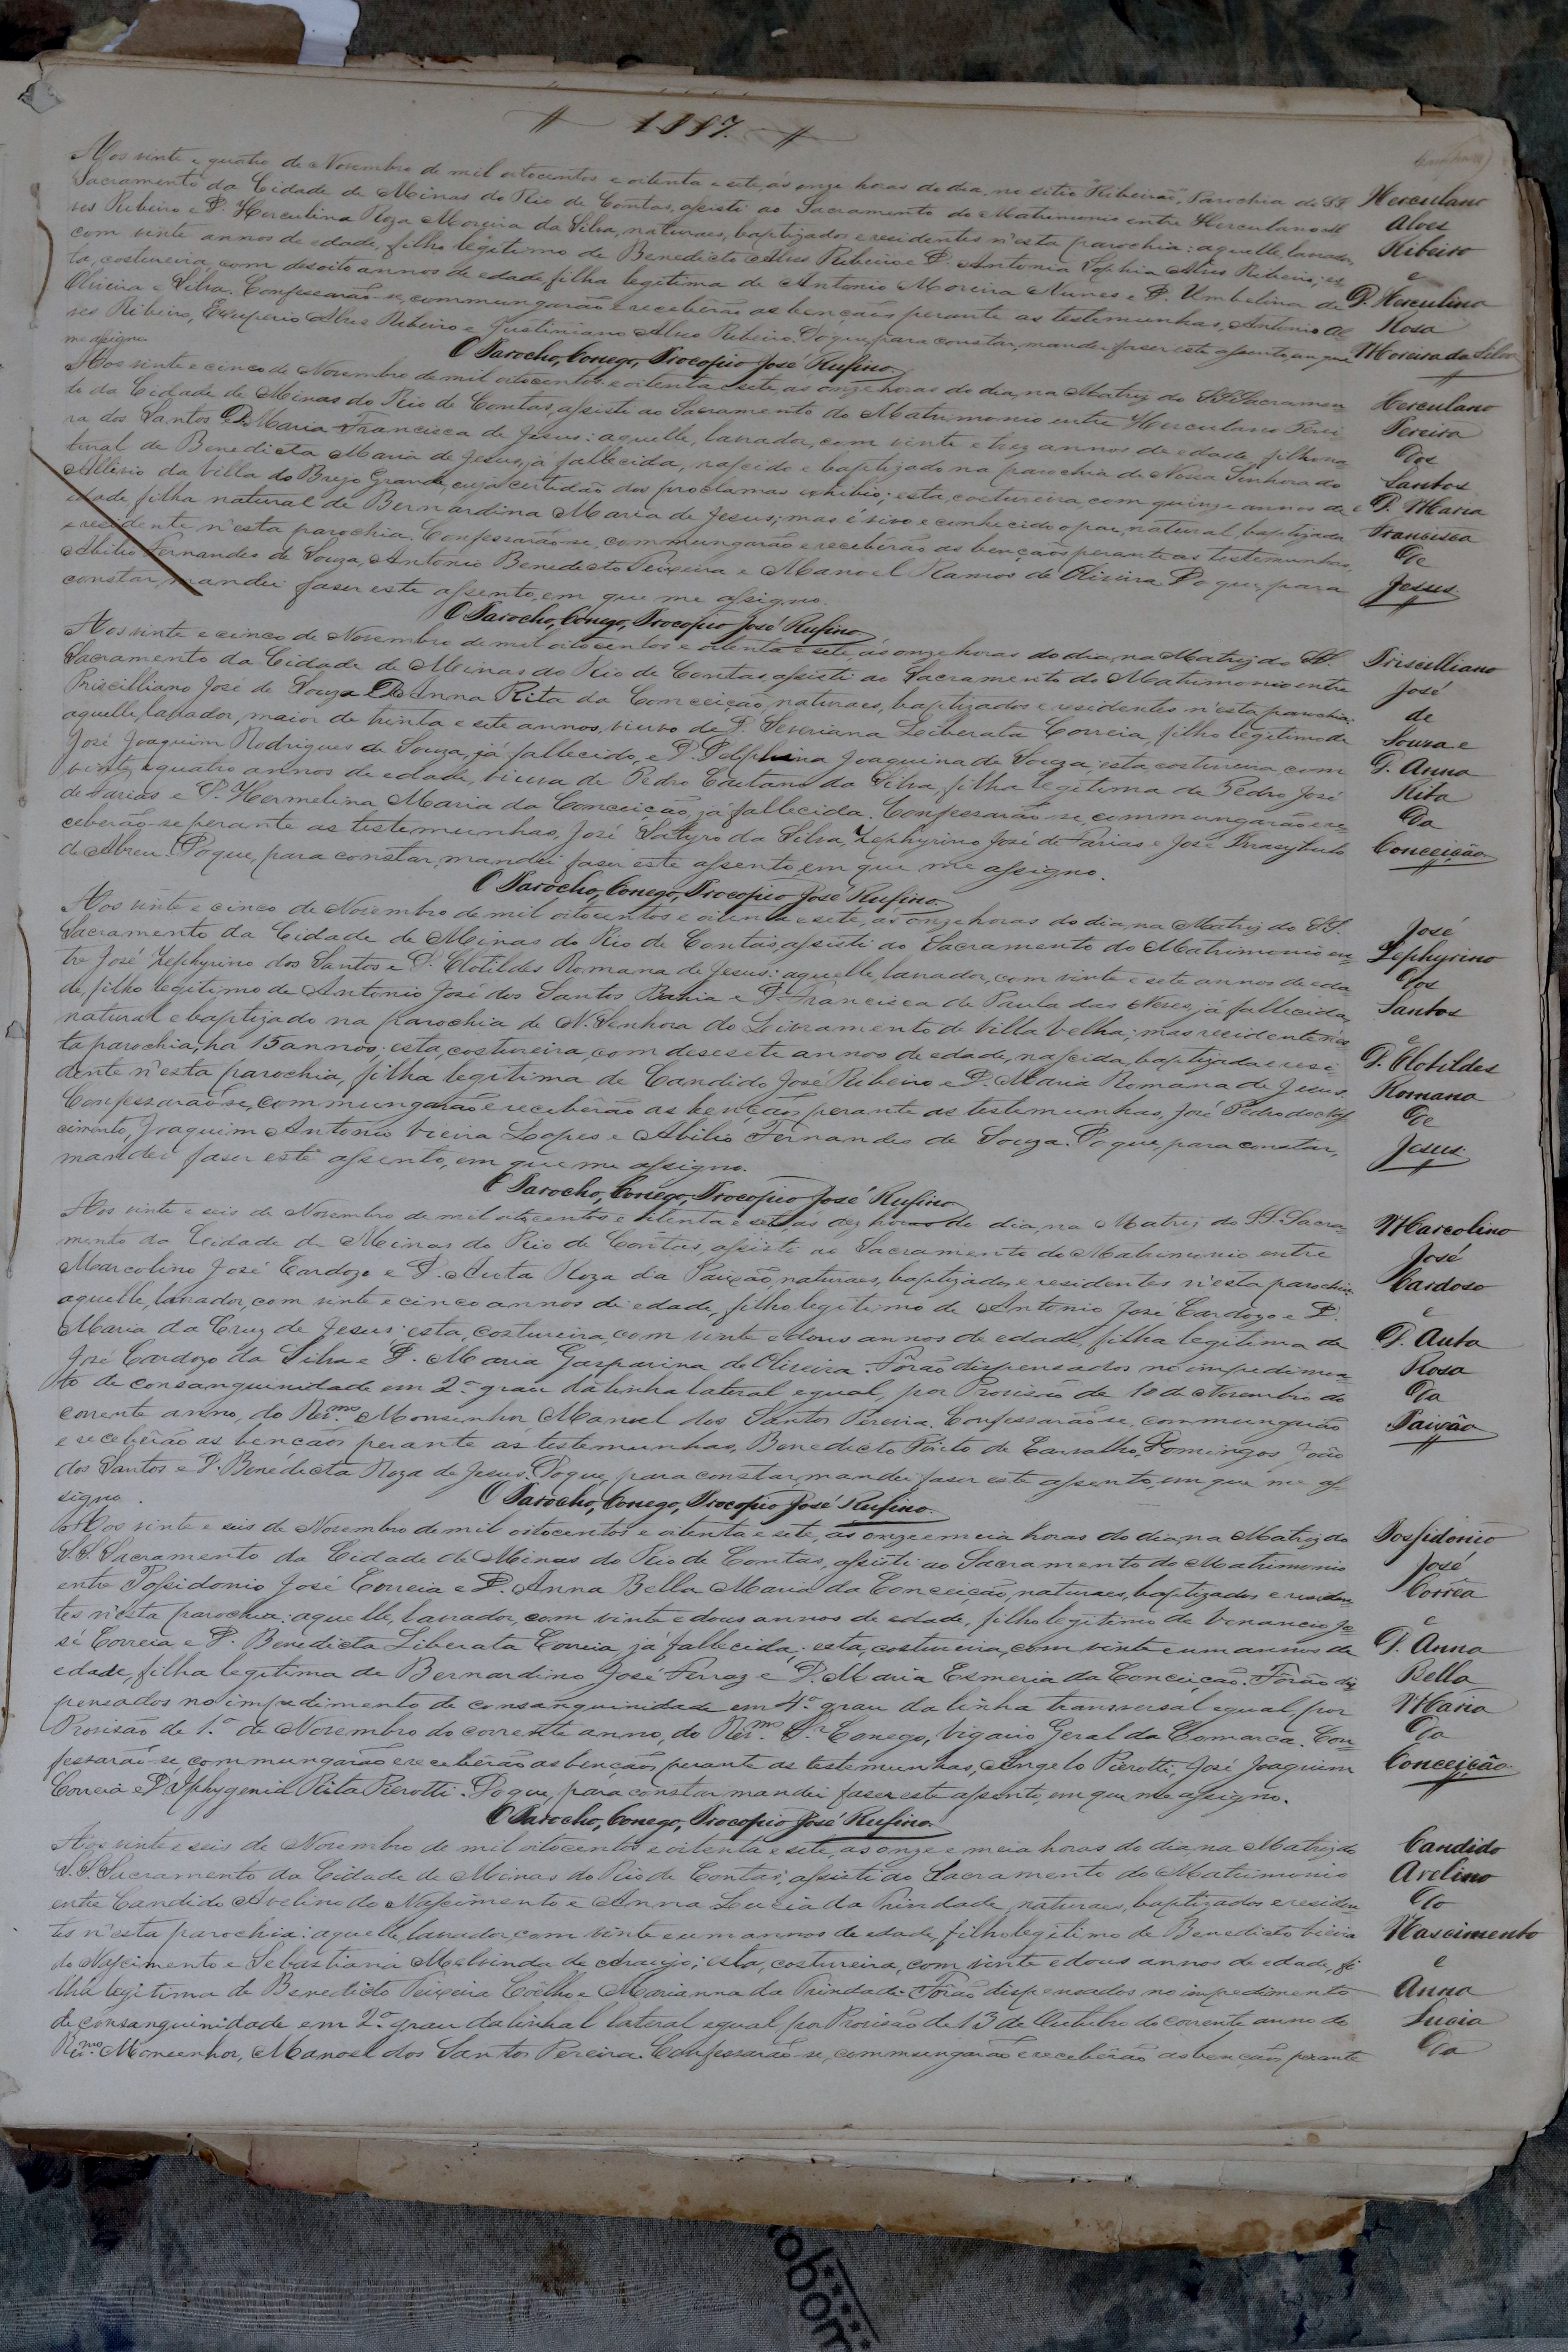 1887.
Aos vinte e quatro de Novembro de mil oitocentos e oitenta e sete, ás onze horas do dia, no sitio Ribeirão, Parochia do SS.
Sacramento da Cidade de Minas do Rio de Contas, assisti ao Sacramento do Matrimonio entre Herculano Al
ves Ribeiro e D. Herculina Roza Moreira da Silva, naturaes, baptizados e residentes n'esta parochia: aquelle, lavrador,
com vinte annos de edade, filho legitimo de Benedicto Alves Ribeiro e D. Antonia Sophia Alves Ribeiro; es
ta, costureira, com desoito annos de edade, filha legitima de Antonio Moreira Nunes e D. Umbelina de
Oliveira e Silva. Confessarão-se, commungarão e receberão as bençãos perante as testemunhas, Antonio Al
ves Ribeiro, Exuperio Alves Ribeiro e Justiniano Alves Ribeiro. Do que, para constar, mandei faser este assento, em que
me assigno.
O Parocho, Conego, Procopio José Rufino
Herculano
Alves
Ribeiro
e
D. Herculina
Rosa
Moreira da Silva
Aos vinte e cinco de Novembro de mil oitocentos e oitenta e sete, as onze horas do dia, na Matriz do SS. Sacramen
to da Cidade de Minas do Rio de Contas, assisti ao Sacramento do Matrimonio entre Herculano Perei
ra dos Santos e D. Maria Francisca de Jesus: aquelle, lavrador, com vinte e trez annos de edade, filho na
tural de Benedicta Maria de Jesus, já fallecida, nascido e baptizado na parochia de Nossa Senhora do
Allivio da Villa do Brejo Grande, cuja certidão dos proclamas exhibio; esta, costureira, com quinze annos de
edade filha natural de Bernardina Maria de Jesus; mas é vivo e conhecido o pae, natural, baptizada
e residente n'esta parochia. Confessarão-se, commungarão e receberão as bençãos perante as testemunhas,
Abilio Fernandes de Souza, Antonio Benedicto Teixeira e Manoel Ramos de Oliveira. Do que, para
constar, mandei faser este assento, em que me assigno.
O Parocho, Conego, Procopio José Rufino
Herculano
Pereira
dos
Santos
e D. Maria
Francisca
de
Jesus.
Aos vinte e cinco de Novembro de mil oitocentos e oitenta e sete, ás onze horas do dia, na Matriz do SS.
Sacramento da Cidade de Minas do Rio de Contas, assisti ao Sacramento do Matrimonio entre
Priscilliano José de Souza e D. Anna Rita da Conceição, naturaes, baptizados e residentes n'esta parochia:
aquelle, lavrador, maior de trinta e sete annos, viuvo de D. Severiana Liberata Correia, filho legitimo de
José Joaquim Rodrigues de Souza, já fallecido, e D. Delphina Joaquina de Souza; esta, costureira, com
vinte e quatro annos de edade, viuva de Pedro Caetano da Silva, filha legitima de Pedro José
de Farias e D. Hermelina Maria da Conceição, já fallecida. Confessarão-se, commungarão e re
ceberão-se perante as testemunhas, José Satyro da Silva, Zephyrino José de Farias e José Trasybulo
de Abreu. Do que, para constar, mandei faser este assento, em que me assigno.
O Parocho, Conego, Procopio José Rufino
Priscilliano
José
de
Souza e
D. Anna
Rita
da
Conceição
Aos vinte e cinco de Novembro de mil oitocentos e oitenta e sete, as onze horas do dia, na Matriz do SS.
Sacramento da Cidade de Minas do Rio de Contas, assisti ao Sacramento do Matrimonio en
tre José Zephyrino dos Santos e D. Clotildes Romana de Jesus: aquelle, lavrador, com vinte e sete annos de eda
de, filho legitimo de Antonio José dos Santos Bahia e D. Francisca de Paula das Neves, já fallecida,
natural e baptizado na parochia de N. Senhora do Livramento de Villa Velha; mas residente n'es
ta parochia, ha 15 annos; esta, costureira, com desesete annos de edade, nascida, baptizada e resi
dente n'esta parochia, filha legitima de Candido José Ribeiro e D. Maria Romana de Jesus.
Confessarão-se, commungarão e receberão as bençãos perante as testemunhas, José Pedro do Nas
cimento, Joaquim Antonio Vieira Lopes e Abilio Fernandes de Souza. Do que, para constar,
mandei faser este assento, em que me assigno.
O Parocho, Conego, Procopio José Rufino
José
Zephyrino
dos
Santos
e
D. Clotildes
Romana
de
Jesus.
Aos vinte e seis de Novembro de mil oitocentos e oitenta e sete, ás dez horas do dia, na Matriz do SS. Sacra
mento da Cidade de Minas do Rio de Contas, assisti ao Sacramento do Matrimonio entre
Marcolino José Cardozo e D. Auta Roza da Paixão, naturaes, baptizados e residentes n'esta parochia:
aquelle, lavrador, com vinte e cinco annos de edade, filho legitimo de Antonio José Cardozo e D.
Maria da Cruz de Jesus; esta, costureira, com vinte e dous annos de edade, filha legitima de
José Cardozo da Silva e D. Maria Gasparina de Oliveira. Forão dispensados no impedimen
to de consanguinidade em 2º grau da linha lateral egual, por Provisão de 10 de Novembro do
corrente anno, do Revmo Monsenhor Manoel dos Santos Pereira. Confessarão-se, commungarão
e receberão as bençãos perante as testemunhas, Benedicto Pinto de Carvalho, Domingos João
dos Santos e D. Benedicta Roza de Jesus. Do que, para constar, mandei faser este assento, em que me as
signo.
O Parocho, Conego, Procopio José Rufino.
Marcolino
José
Cardoso
e
D. Auta
Rosa
da
Paixão
Aos vinte e seis de Novembro de mil oitocentos e oitenta e sete, as onze e meia horas do dia, na Matriz do
S.S. Sacramento da Cidade de Minas do Rio de Contas, assisti ao Sacramento do Matrimonio
entre Possidonio José Correia e D. Anna Bella Maria da Conceição, naturaes, baptizados e residen
tes n'esta parochia: aquelle, lavrador, com vinte e dous annos de edade, filho legitimo de Venancio Jo
sé Correia e D. Benedicta Liberata Correia, já fallecida; esta, costureira, com vinte e um annos de
edade, filha legitima de Bernardino José Ferraz e D. Maria Esmeria da Conceição. Forão dis
pensados no impedimento de consanguinidade em 4º grau da linha transversal egual, por
Provisão de 1º de Novembro do corrente anno, do Revmo Sr Conego, Vigario Geral da Comarca. Con
fessarão-se, commungarão e receberão as bençãos perante as testemunhas, Angelo Pierotti, José Joaquim
Correia e D. Iphygenia Rita Pierotti. Do que, para constar mandei faser este assento, em que me assigno.
O Parocho, Conego, Procopio José Rufino.
Possidonio
José
Corrêa
e
D. Anna
Bella
Maria
da
Conceição
Aos vinte e seis de Novembro de mil oitocentos e oitenta e sete, as onze e meia horas do dia, na Matriz do
S.S. Sacramento da Cidade de Minas do Rio de Contas, assisti ao Sacramento do Matrimonio
entre Candido Avelino do Nascimento e Anna Lucia da Trindade, naturaes, baptizados e residen
tes n'esta parochia: aquelle, lavrador, com vinte e um annos de edade, filho legitimo de Benedicto Vieira
do Nascimento e Sebastiana Melvinda de Araujo; esta, costureira, com vinte e dous annos de edade, fi
lha legitima de Benedicto Teixeira Coêlho e Marianna da Trindade. Forão dispensados no impedimento
de consanguinidade em 2º grau da linhal lateral egual por Provisão de 13 de Outubro do corrente anno do
Revmo Monsenhor, Manoel dos Santos Pereira. Confessarão-se, commungarão e receberão as bençãos perante
Candido
Avelino
do
Nascimento
e
Anna
Lucia
da